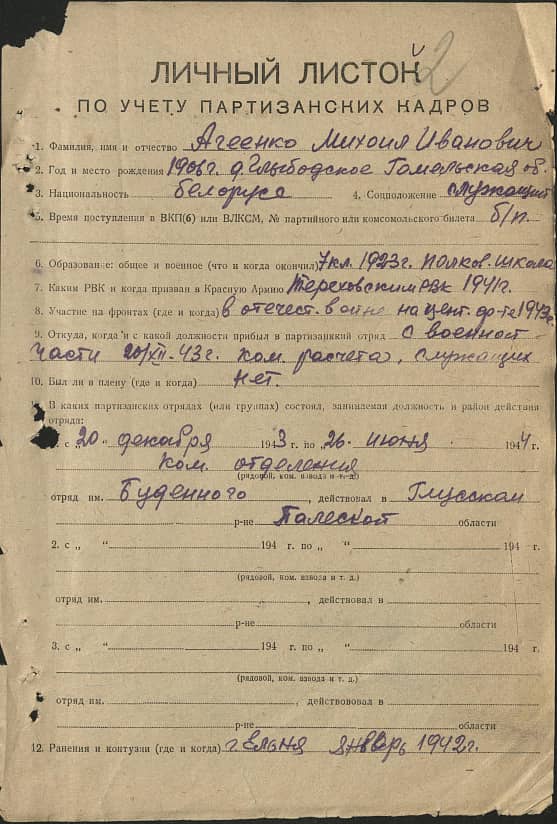 2
ЛИЧНЫЙ ЛИСТОК
ПО УЧЕТУ ПАРТИЗАНСКИХ КАДРОВ
1. Фамилия, имя и отчество Агеенко Михоил Иванович
2. Год и место рождения 1906 г. д. Глыбодское Гомельская об.
3. Национальность белорус 4. Соцположение служащий
5. Время поступления в ВКП(б) или ВЛКСМ, № партийного или комсомольского билета б/п.
6. Образование: общее и военное (что и когда окончил) 7 кл. 1923 г. полков. школа
7. Каким РВК и когда призван в Красную Армию Тереховским РВК 1941 г.
8. Участие на фронтах (где и когда) в отечест. войне на цент. фр-те 1943 г.
9. Откуда, когда и с какой должности прибыл в партизанский отряд с военной
части 20/XII-43 г. ком. расчета, служащих
10. Был ли в плену (где и когда) нет.
В каких партизанских отрядах (или группах) состоял, занимаемая должность и район действия
отряда:
1. с „20 “ декабря 1943 г. по „26 “ июня 1944 г.
ком. отделения
(рядовой, ком. взвода и т. д.)
отряд им. Буденного, действовал в Глусском
р-не Палеской области
2. с „ “ 194 г. по „ “ 194 г.
(рядовой, ком. взвода и т. д.)
отряд им. , действовал в
р-не области
3. с „ “ 194 г. по „ “ 194 г.
(рядовой, ком. взвода и т. д.)
отряд им. , действововал в
р-не области
12. Ранения и контузии (где и когда) г Ельня январь 1942 г.